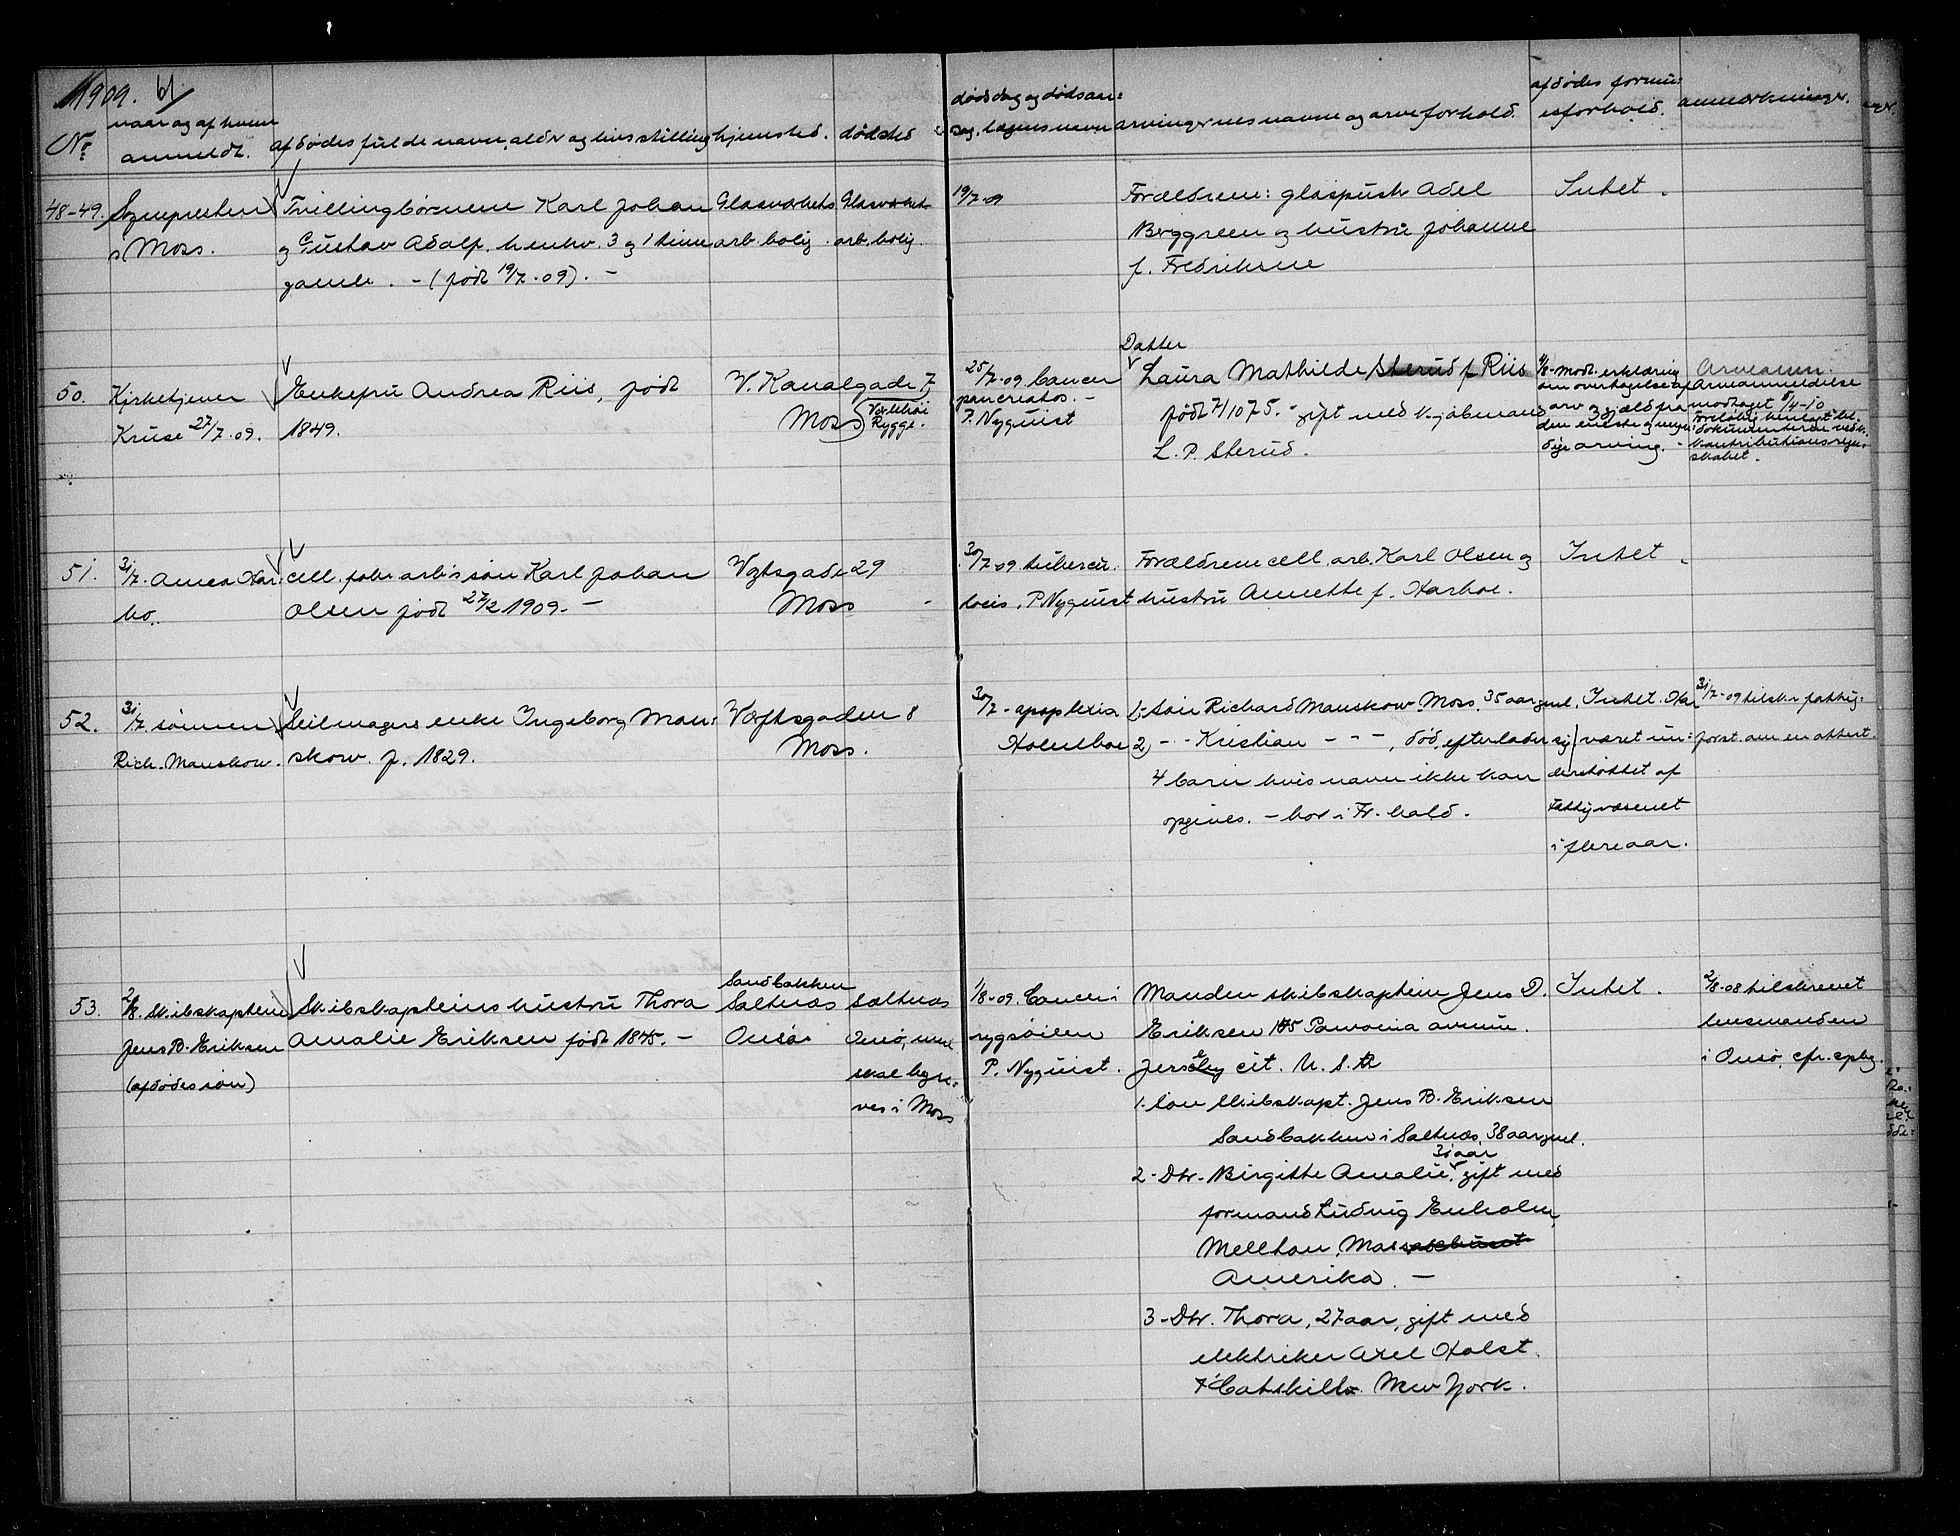 1909. 61/
Nr. naar og af hvem anmeldt. afdødes fulde navn, alder og livsstilling hjemsted. dødsted
dødsdag og dødsaarsag, lægens navn arvingernes navne og arveforhold. afdødes formuesforhold. anmerkninger.
48-49. Sognepresten Tvillingbørnene Karl Johan Glasværkets Glasværkets
i Moss. og Gustav Adolf, henhv. 3 og 1 time arb.bolig. arb.bolig.
gamle. - (født 19/7-09). -
19/7-09 Forældrene: glaspuster Adel Intet.
Berggreen og hustru Johanne
f. Fredriksen
50. Kirketjener Enkefru Andrea Riis, født V. Kanalgade 7,
Kruse 27/7-09. 1849. Moss (Værkhøi Rygge.
Datter
25/7-09. Cancer Laura Mathilde Sterud f. Riis
pancreatos. - født 7/10 75. - gift med kjøbmand
P. Nyquist L. P. Sterud.
modt. erklæring
om overtagelse af
arv og gjæld fra
den eneste og myndige arving. -
Arveanm.
Arveanmeldelse
modtaget 5/4-10
kontributionsregnskabet.
51. 31/7. Anna Har- cell. fabr. arb's søn Karl Johan Vogtsgade 29
bo. Olsen født 27/2 1909. - Moss -
30/7-09 tubercu- Forældrene cell. arb. Karl Olsen og Intet.
losis. P. Nyquist hustru Annette f. Harboe.
52. 31/7. sønnen Seilmagers enke Ingeborg Man- Værftsgaden 8
Rich. Manskow. skow. f. 1829. Moss.
30/7 - apoplexia 1. Søn Richard Manskow Moss. 35 aar gml. Intet. Har 31/7-09 tilskr. fattig-
Holmboe 2) - - Kristian - - -, død, efterlader sig været un- forst. om en attest.
4 børn hvis navn ikke kan derstøttet af
opgives. - bor i Fr.hald. fattigvæsenet
i flere aar.
53. 2/8. Skibskaptein Skibskapteins hustru Thora Sandbakken Saltnæs Saltnæs
Jens B. Eriksen Amalie Eriksen født 1845. - Onsø Onsø, men
(afdødes søn) skal begra-
ves i Moss
1/8-09. Cancer i Manden skibskaptein Jens D. Intet. 2/8-08 tilskrevet
rygsøilen Eriksen 145 Pamona avenue. lensmanden
P. Nyquist. Jersey cit. U. S. A i Onsø, cfr. opbg.
1. Søn skibskapt. Jens B. Eriksen
Sandbakken i Saltnæs, 38 aar gml.
2 - Dtr. Birgitte Amalie, 31 aar gift med
formand Ludvig Enholm,
Mellton, Massachuset
Amerika. -
3 - Dtr. Thora, 27 aar, gift med
elektriker Axel Holst.
Catskill. New York.